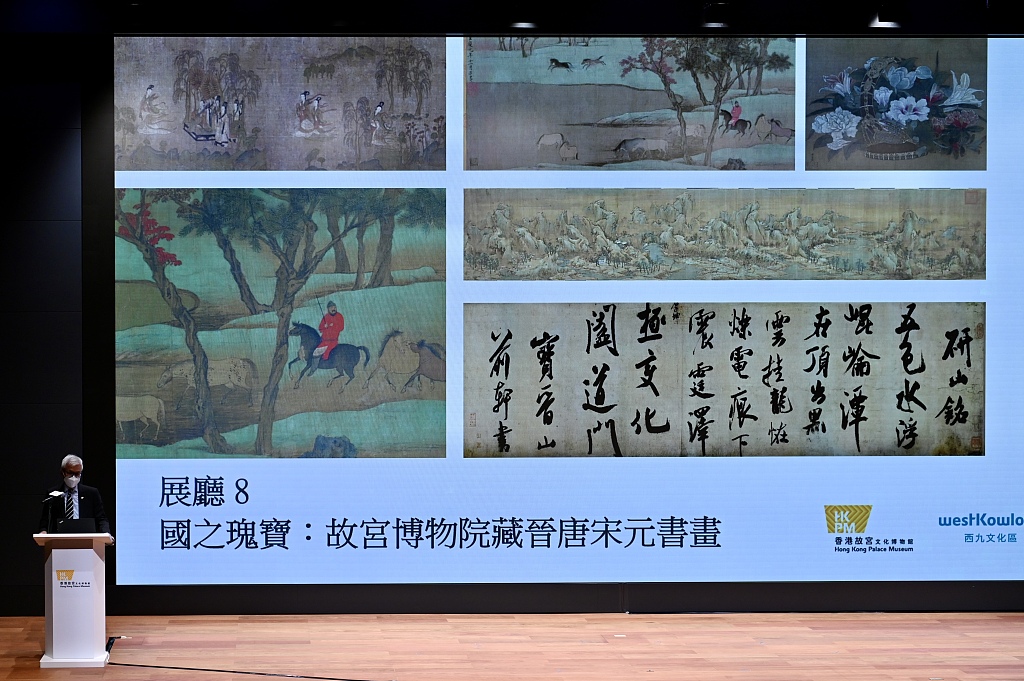 研山銘
五色水浮
崐崘潭
在頂出黑
雲挂龍怪
爍電痕下
震霆澤
極變化
闔道門
寶晉山
前軒書
展廳 8
國之瑰寶：故宮博物院藏晉唐宋元書畫
HK
PM
香港故宮文化博物館
Hong Kong Palace Museum
westKowlo
西九文化區
香港故宮文化博物館
Hong Kong Palace Museum